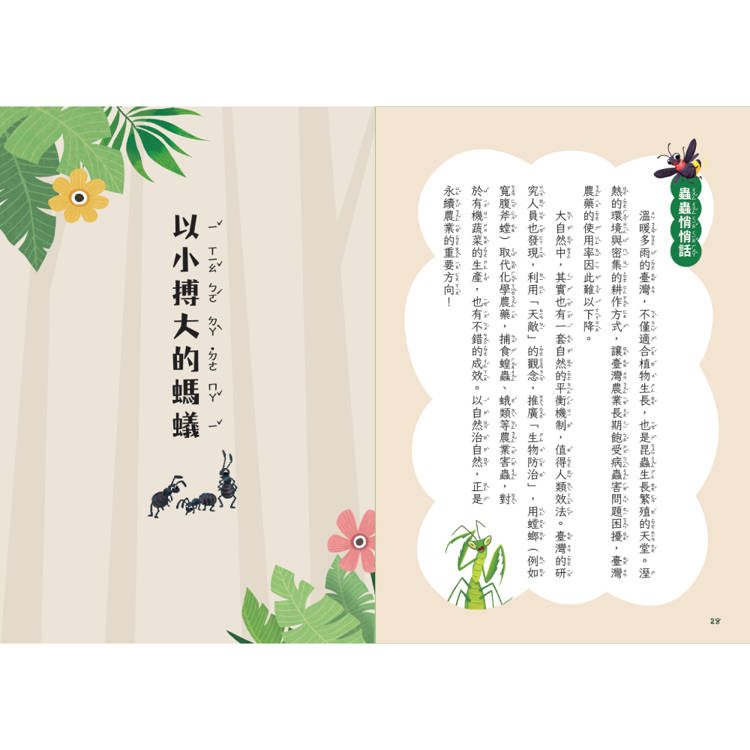 蟲蟲悄悄話
溫暖多雨的臺灣，不僅適合植物生長，也是昆蟲生長繁殖的天堂。溼
熱的環境與密集的耕作方式，讓臺灣農業長期飽受病蟲害問題困擾，臺灣
農藥的使用率因此難以下降。
大自然中，其實也有一套自然的平衡機制，值得人類效法。臺灣的研
究人員也發現，利用「天敵」的觀念，推廣「生物防治」，用螳螂（例如
寬腹斧螳）取代化學農藥，捕食蝗蟲、蛾類等農業害蟲，對
於有機蔬菜的生產，也有不錯的成效。以自然治自然，正是
永續農業的重要方向！
28
以小搏大的螞蟻
ㄧˇ ㄒㄧㄠˇ ㄅㄛˊ ㄉㄚˋ ˙ㄉㄜ ㄇㄚˇ ㄧˇ